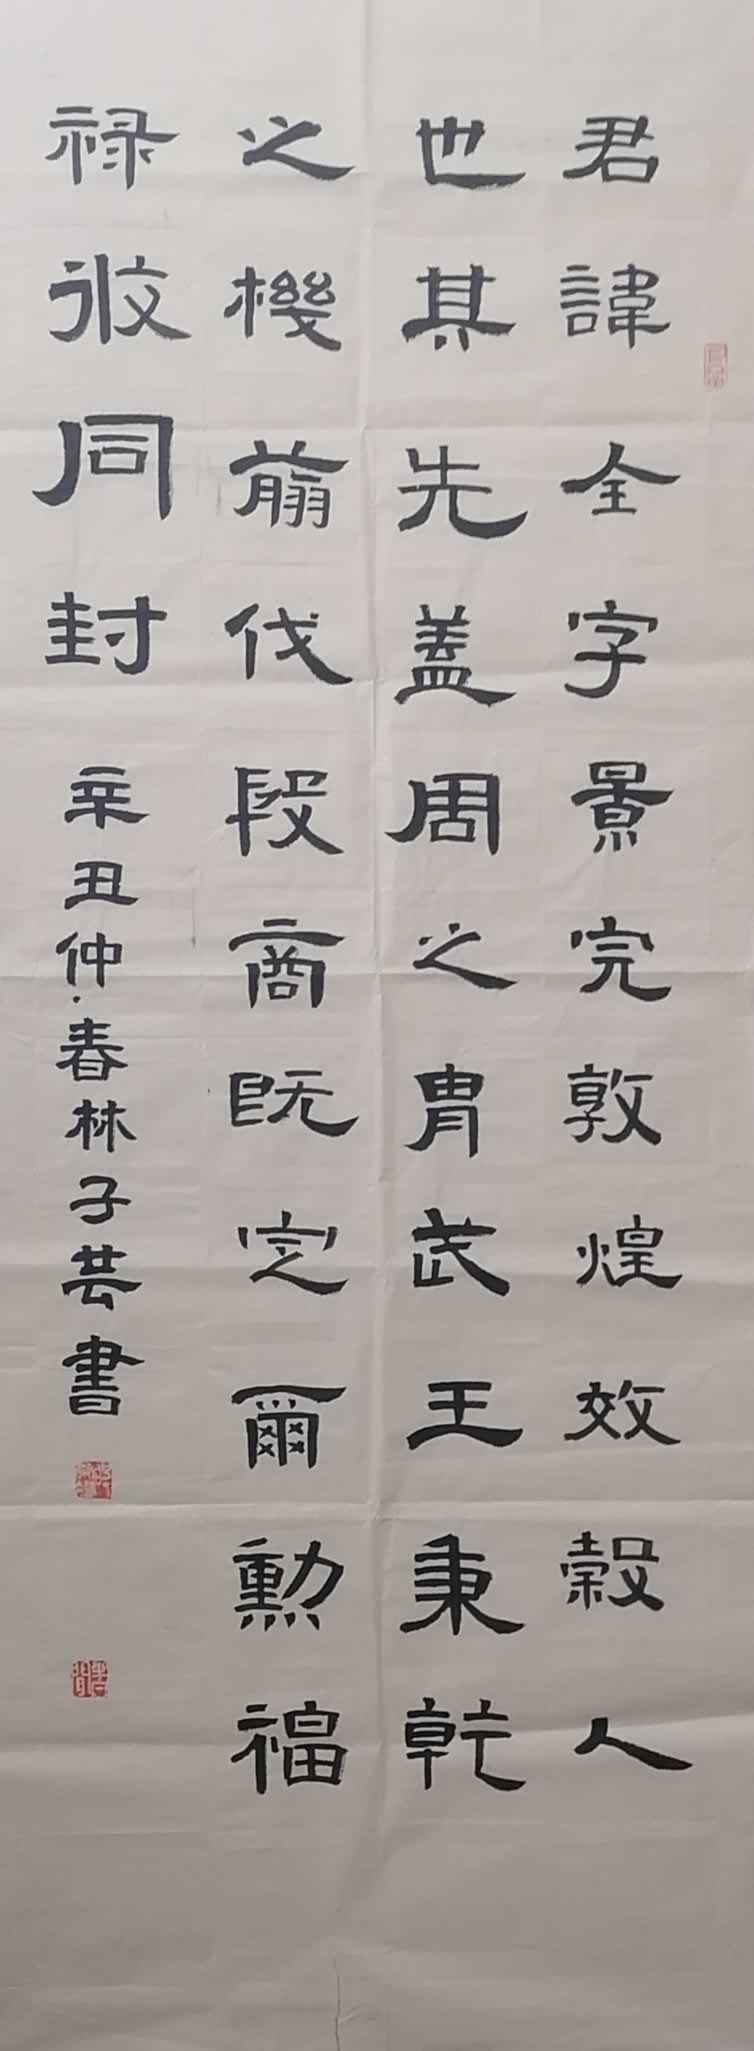 君諱全字景完敦煌效穀人
也其先盖周之胄武王秉乾
之機翦伐殷商既定爾勳福
禄攸同封
辛丑仲春林子芸書